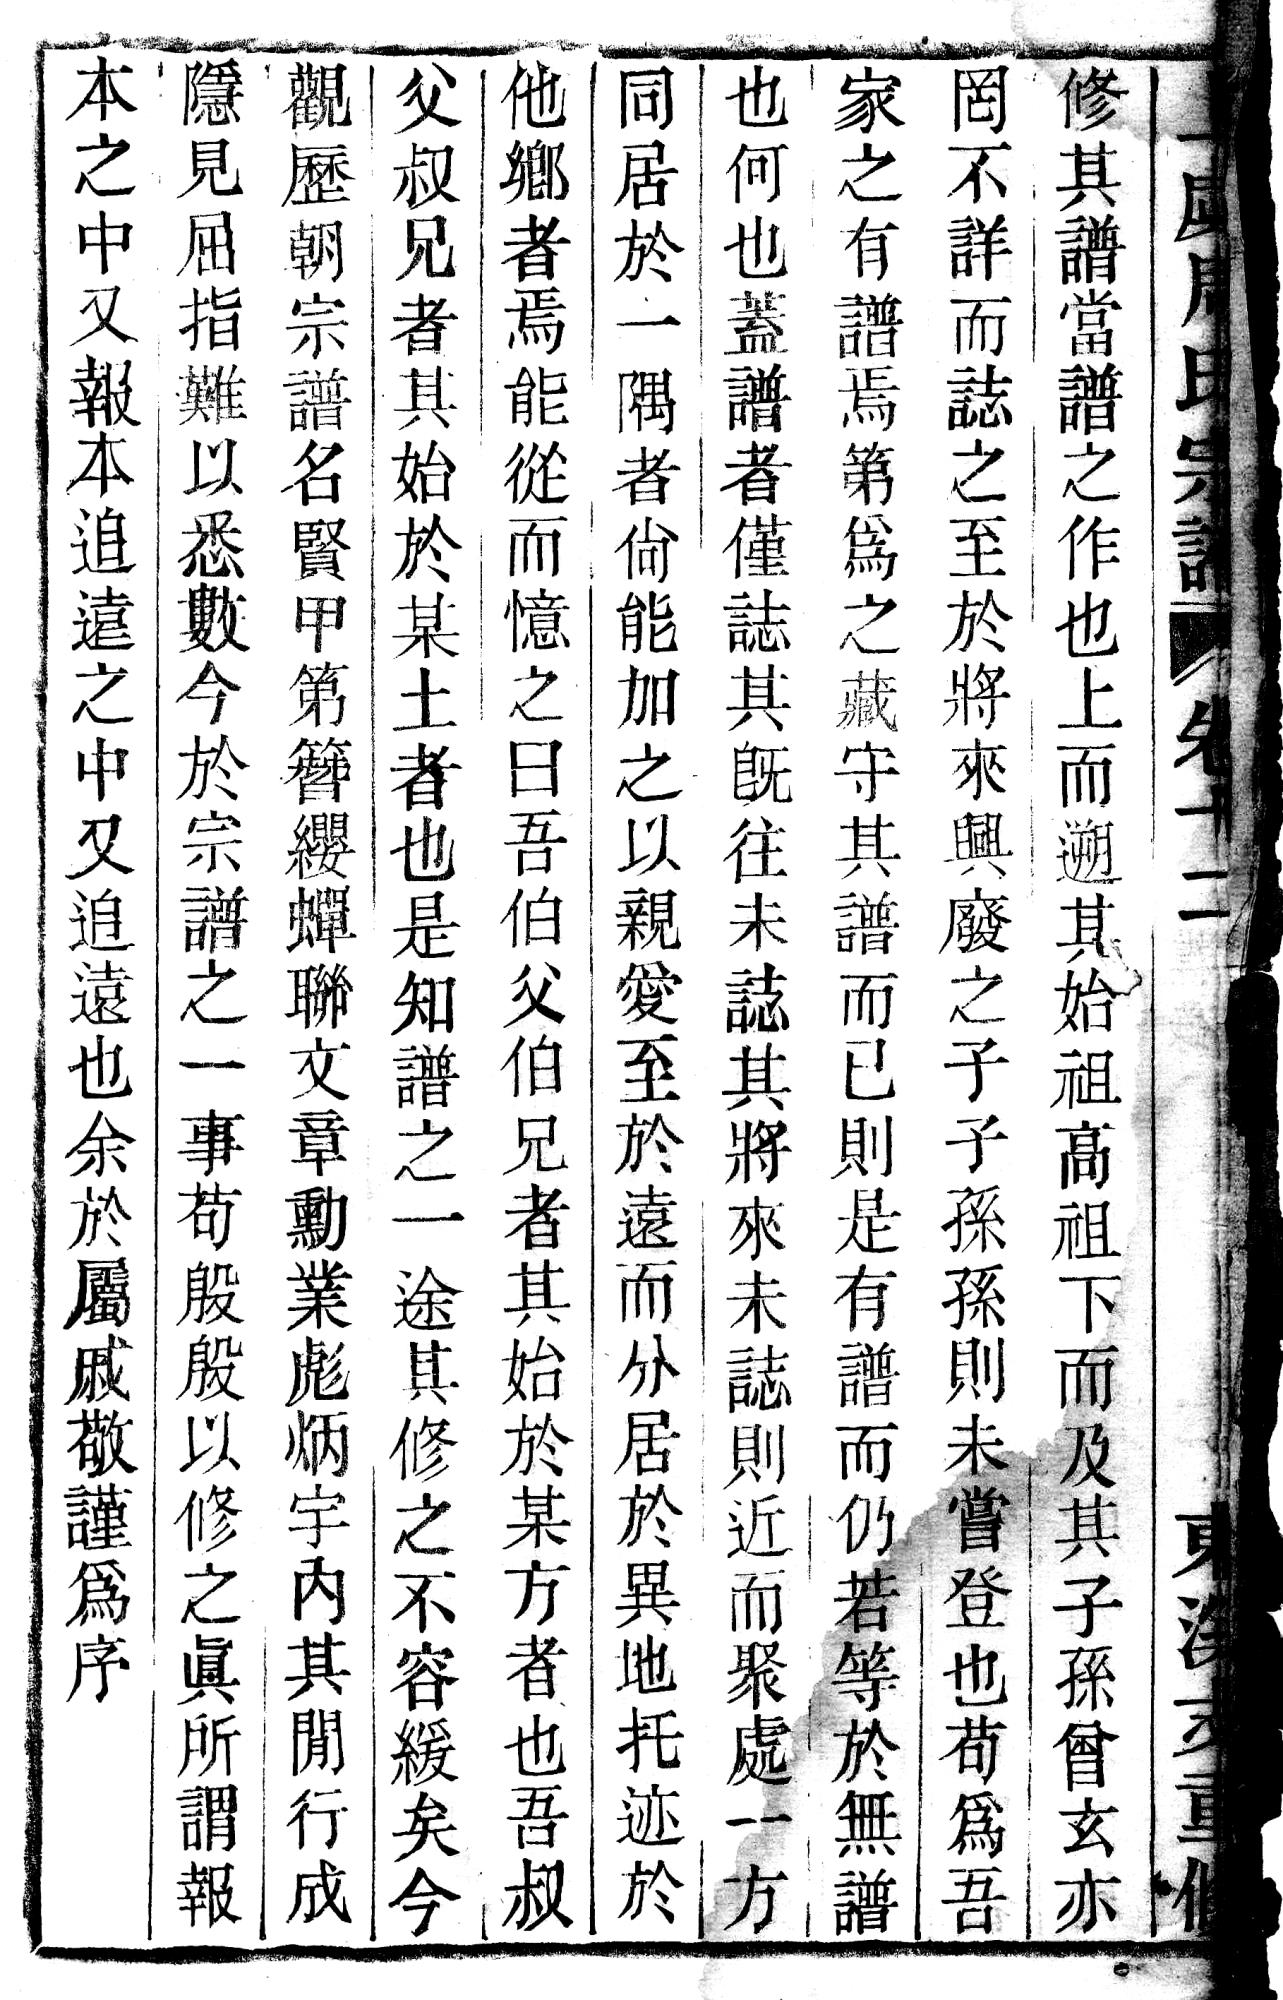 氏宗譜 卷十二 東 重修
修其譜當譜之作也上而遡其始祖高祖下而及其子孫曾玄亦
罔不詳而誌之至於將來興廢之子子孫孫則未嘗登也苟爲吾
家之有譜焉第爲之藏守其譜而已則是有譜而仍若等於無譜
也何也蓋譜者僅誌其旣往未誌其將來未誌則近而聚處一方
同居於一隅者尙能加之以親愛至於遠而分居於異地托迹於
他鄉者焉能從而憶之曰吾伯伯父伯兄者其始於某方者也吾叔
父叔兄者其始於某土者也是知譜之一途其修之不容緩矣今
觀歷朝宗譜名賢甲第簪纓蟬聯文章勳業彪炳宇內其閒行成
隱見屈指難以悉數今於宗譜之一事苟殷殷以修之眞所謂報
本之中又報本追遠之中又追遠也余於屬戚敬謹爲序